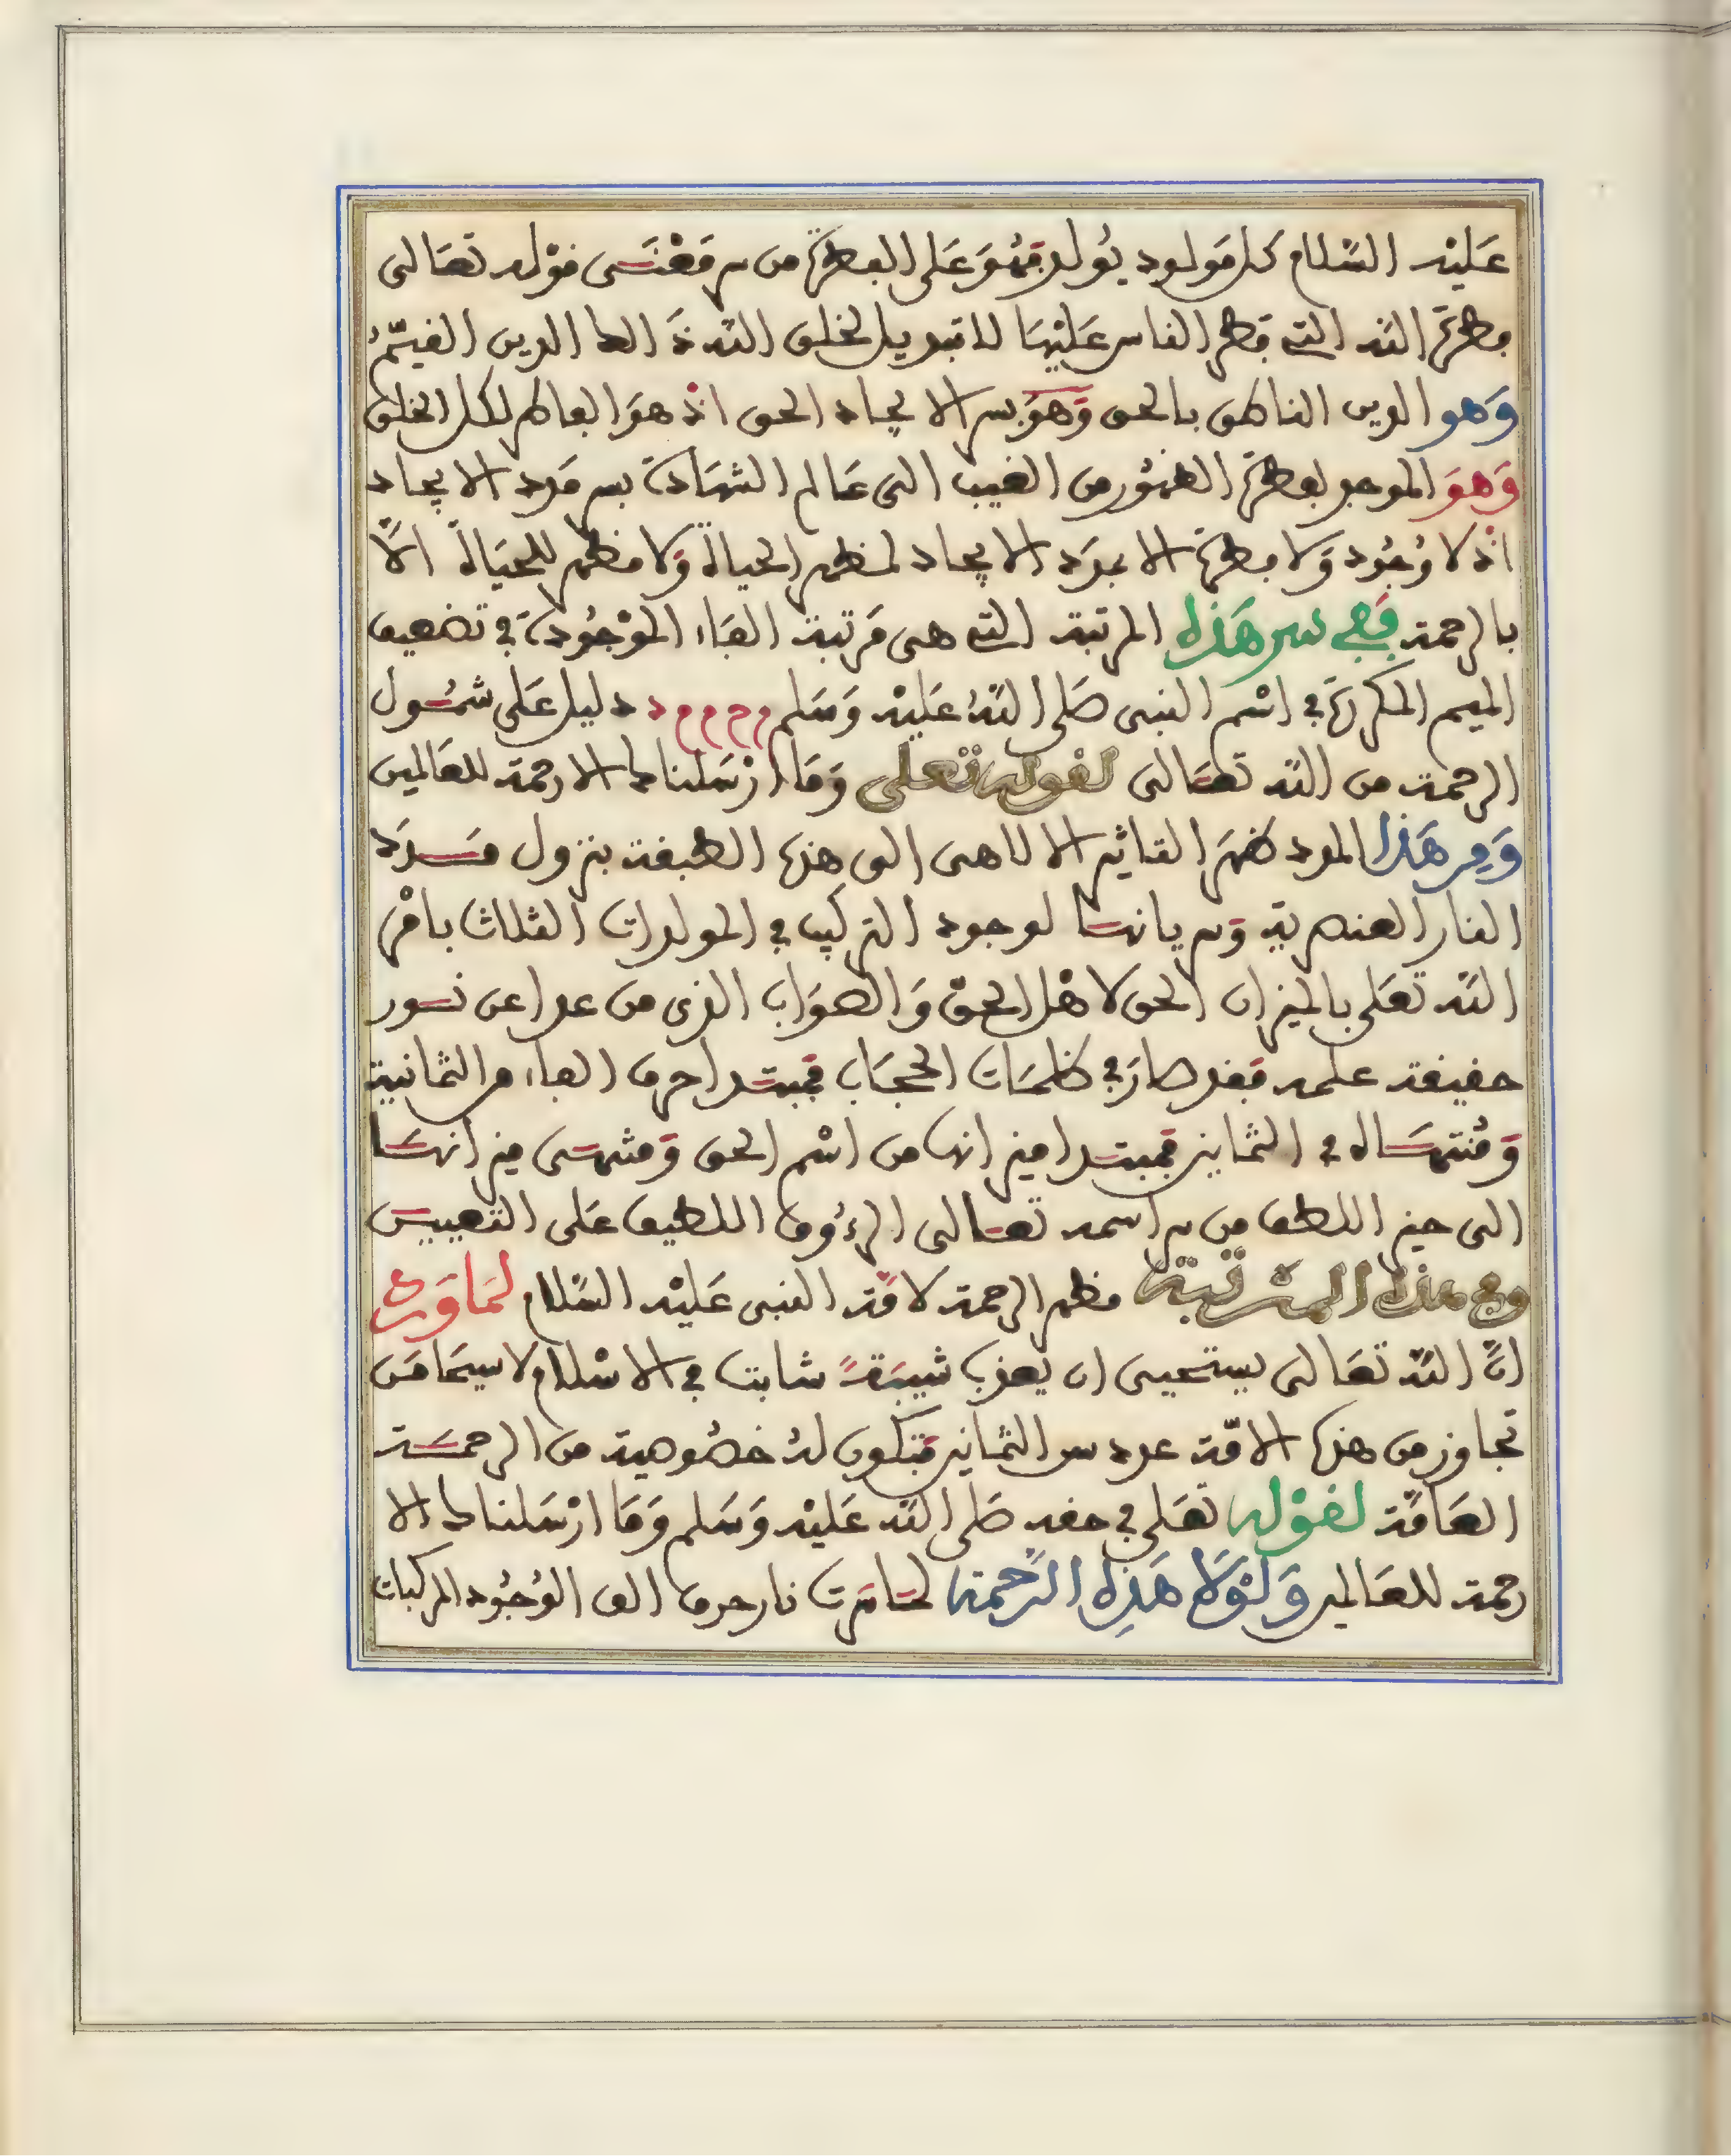 عَليْه السّلام كل مَولود يُولد فهُوَ عَلى الفطرة من سر مَعْنَى قوْله تعَالى
فطرة الله التي فطر الناس عَليْهَا لا تبديل لخلق الله ذَالك الدين القيّمُ
وَهو الدين الناطق بالحق وَهوَ سر الايجاد الحق اذ هوَ الفاطر لكل الخلق
وَهوَ الموجد لفطرة الظهُور من الغيب الى عَالم الشهَادة بسر مَدد الايجاد
اذ لا وُجُود وَلا فطرة الا بمدَد الايجاد لمظهر الحياة وَلا مظهر للحيَاة الاّ
بالرحمة فَفي سر هَذه المرتبة التي هى مَرتبة الفَاء الموْجُودة في تضعيف
الميم المكررة في اسْم النبى صَلى اللهُ عَليْه وَسَلم م ح م م د دليل عَلى شمُول
الرحمة من الله تعَالى لقوله تعلى وَمَا ارْسَلناك الا رحمة للعَالمين
وَمِن هَذا المدد ظهَر التاثير الالاهى الى هذه الطبقة بنزول مَدَد
النار العنصرية وَسريانها لوجود التركيب في المولدات الثلاث بامْر
الله تعَلى بالميزان الحق لاهْل الحقّ وَالصوَاب الذى من عدا عن نور
حقيقة علمه فقد صَار في ظلمَات الحجَاب فمبتدا حرف الفاء من الثمانية
وَمُنتهَاه في الثمانين فمبتدا ميزانها من اسْم الحق وَمنتهى ميزانهَا
الى حيز اللطف من سر اسمه تعَالى الرءُوف اللطيف عَلى التعيين
وفي هذه المرتبة مظهر الرحمة لامّة النبى عَليْه السّلام لمَا وَرد
انّ اللهَ تعَالى يستحيى ان يعذب شيبَةً شابت في الاسْلام لاسيمَا مَن
تجاوز من هذه الامّة عدد سن الثمانين فتكون لهُ خصُوصية من الرحمَة
العَامّة لقوْله تعَلى في حقه صَلى الله عَليْه وَسَلم وَمَا ارْسَلناك الا
رحمة للعَالمين وَلوْلا هَذِه الرّحمة لمَا سَرت نار حرف الف الوُجُود المركبات